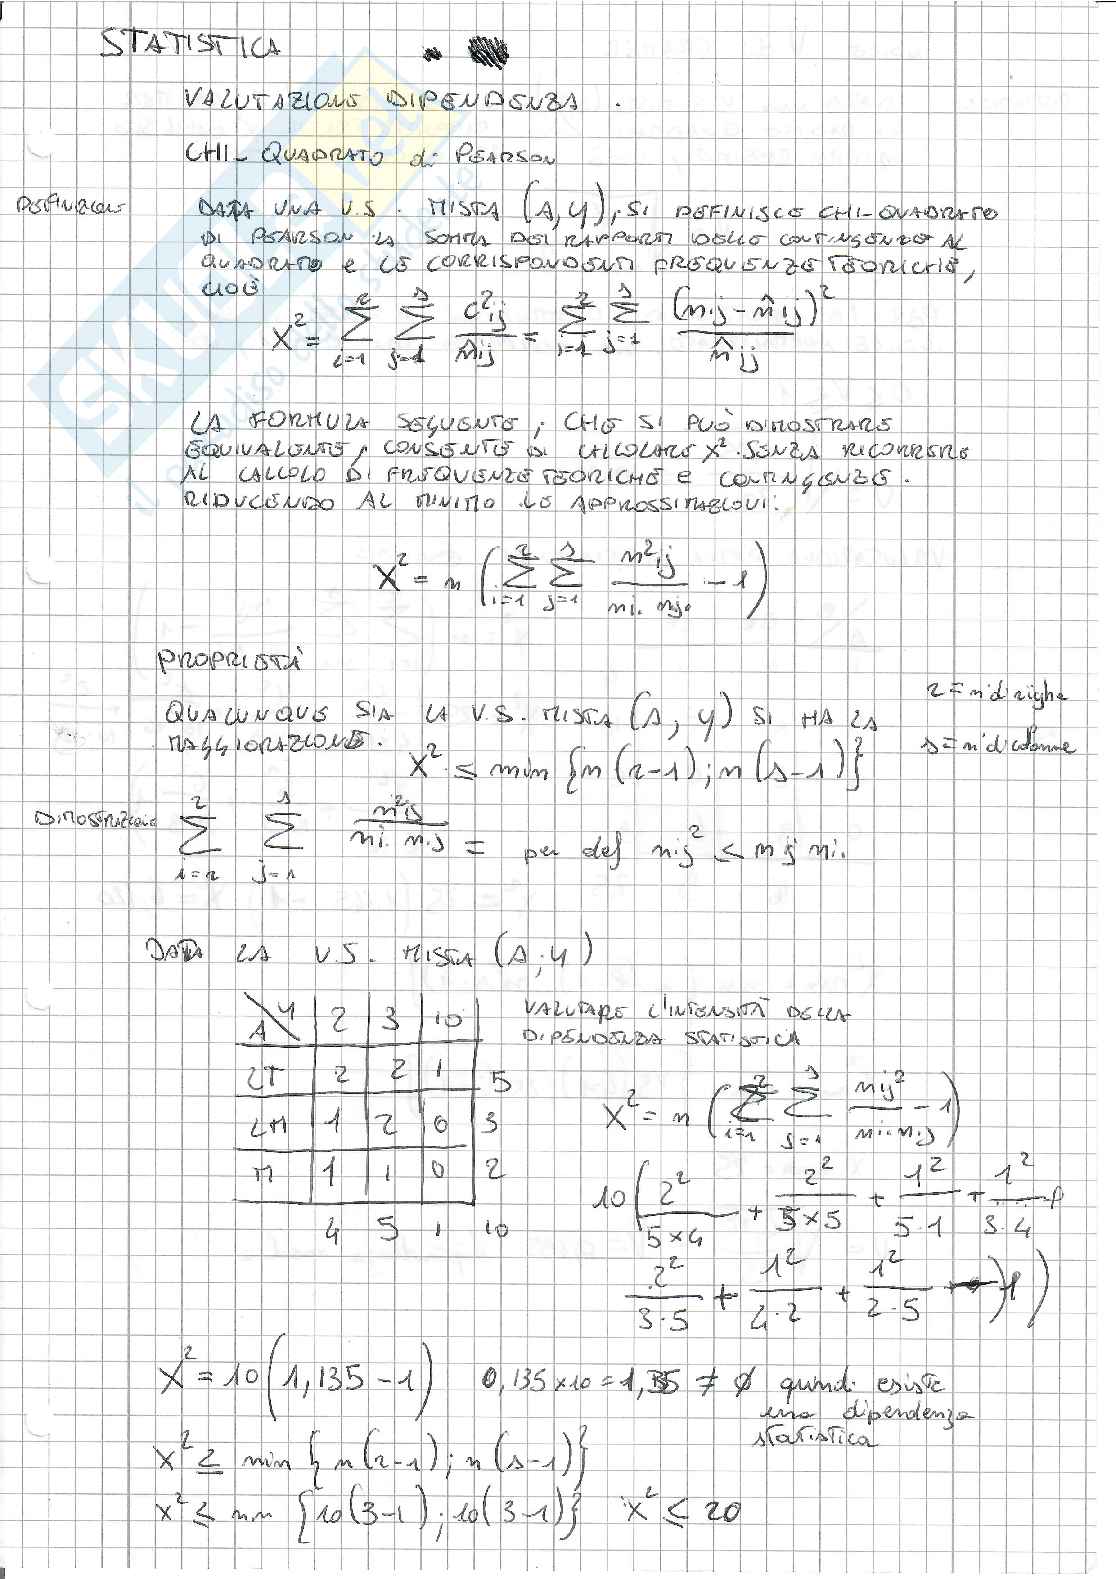 STATISTICA
VALUTAZIONE DIPENDENZA .
CHI-QUADRATO di PEARSON
DEFINIZIONE
DATA UNA V.S. MISTA (A,Y), SI DEFINISCE CHI-QUADRATO
DI PEARSON LA SOMMA DEI RAPPORTI DELLE CONTINGENZE AL
QUADRATO e LE CORRISPONDENTI FREQUENZE TEORICHE,
CIOÈ
X² = Σ(i=1..r) Σ(j=1..s) c²ij / n̂ij = Σ(i=1..r) Σ(j=1..s) (nij - n̂ij)² / n̂ij
LA FORMULA SEGUENTE, CHE SI PUÒ DIMOSTRARE
EQUIVALENTE, CONSENTE DI CALCOLARE X² SENZA RICORRERE
AL CALCOLO DI FREQUENZE TEORICHE e CONTINGENZE.
RIDUCENDO AL MINIMO LE APPROSSIMAZIONI:
X² = n ( Σ(i=1..r) Σ(j=1..s) n²ij / ni. nj. - 1 )
PROPRIETÀ
r = n° di righe
QUALUNQUE SIA LA V.S. MISTA (A, Y) SI HA LA
MAGGIORAZIONE.
s = n° di colonne
X² ≤ min {n(r-1); n(s-1)}
DIMOSTRAZIONE
Σ(i=r..r) Σ(j=1..s) n²ij / ni. n.j = per def nij² ≤ n.j ni.
DATA LA V.S. MISTA (A;Y)
A \ Y 2 3 10
LT 2 2 1 5
LM 1 2 0 3
M 1 1 0 2
4 5 1 10
VALUTARE L'INTENSITÀ DELLA
DIPENDENZA STATISTICA
X² = n ( Σ(i=1..r) Σ(j=1..s) nij² / ni. n.j - 1 )
10 ( 2² / 5×4 + 2² / 5×5 + 1² / 5·1 + 1² / 3·4 +
2² / 3·5 + 1² / 4·2 + 1² / 2·5 - 1 )
X² = 10 (1,135 - 1) 0,135×10 = 1,35 ≠ ∅ quindi esiste
una dipendenza
statistica
X² ≤ min {n(r-1); n(s-1)}
X² ≤ min {10(3-1); 10(3-1)} X² ≤ 20